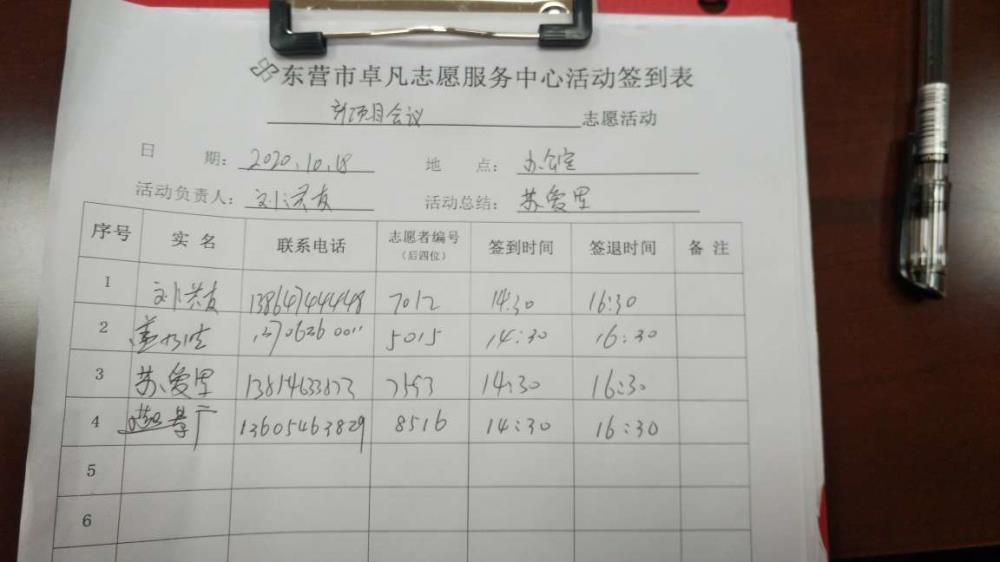 东营市卓凡志愿服务中心活动签到表
新项目会议 志愿活动
日 期: 2020.10.18 地 点: 办公室
活动负责人: 刘洪友 活动总结: 苏爱里
序号 实 名 联系电话 志愿者编号 (后四位) 签到时间 签退时间 备 注
1 刘洪友 13864744448 7012 14:30 16:30
2 5015 14:30 16:30
3 苏爱里 14:30 16:30
4 13605463829 8516 14:30 16:30
5
6